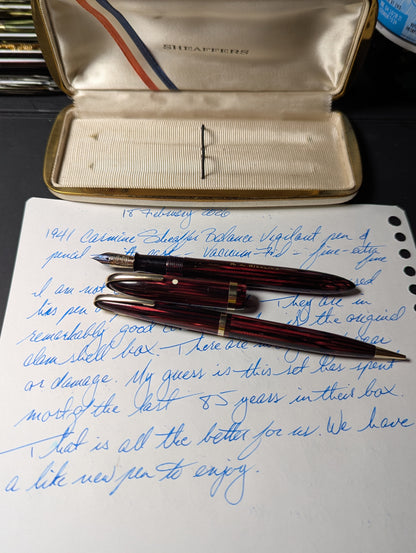 SHEAFFER'S
18 February 2026
1941 Carmine Sheaffer Balance Vigilant pen &
pencil - Vacuum-Fil - fine-extra fine
I am not
this pen They are in
remarkably good the original
clam shell box. There are wear
or damage. My guess is this set has spent
most of the last 85 years in their box.
That is all the better for us. We have
a like new pen to enjoy.